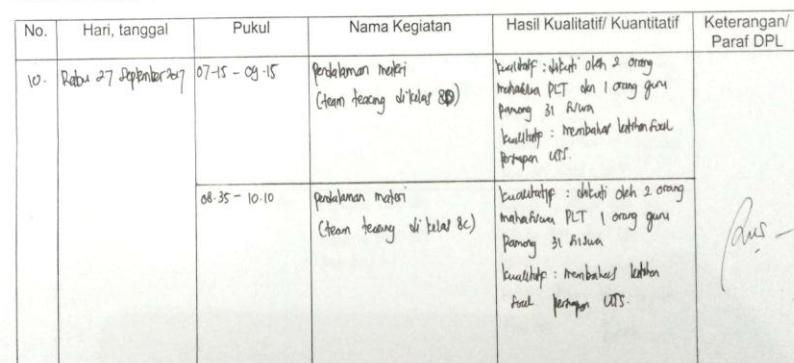 No. Hari, tanggal Pukul Nama Kegiatan Hasil Kualitatif/ Kuantitatif Keterangan/
Paraf DPL
10. Rabu 27 September 2017 07-15 - 09-15 pendalaman materi
(team teacing di kelas 8D)
kualitatif : diikuti oleh 2 orang
mahasiswa PLT dan 1 orang guru
pamong 31 siswa
kualitatif : membahas latihan soal
persiapan UTS.
08.35 - 10.10 pendalaman materi
(team teacing di kelas 8C)
kualitatif : diikuti oleh 2 orang
mahasiswa PLT 1 orang guru
pamong 31 siswa
kualitatif : membahas latihan
soal persiapan UTS.